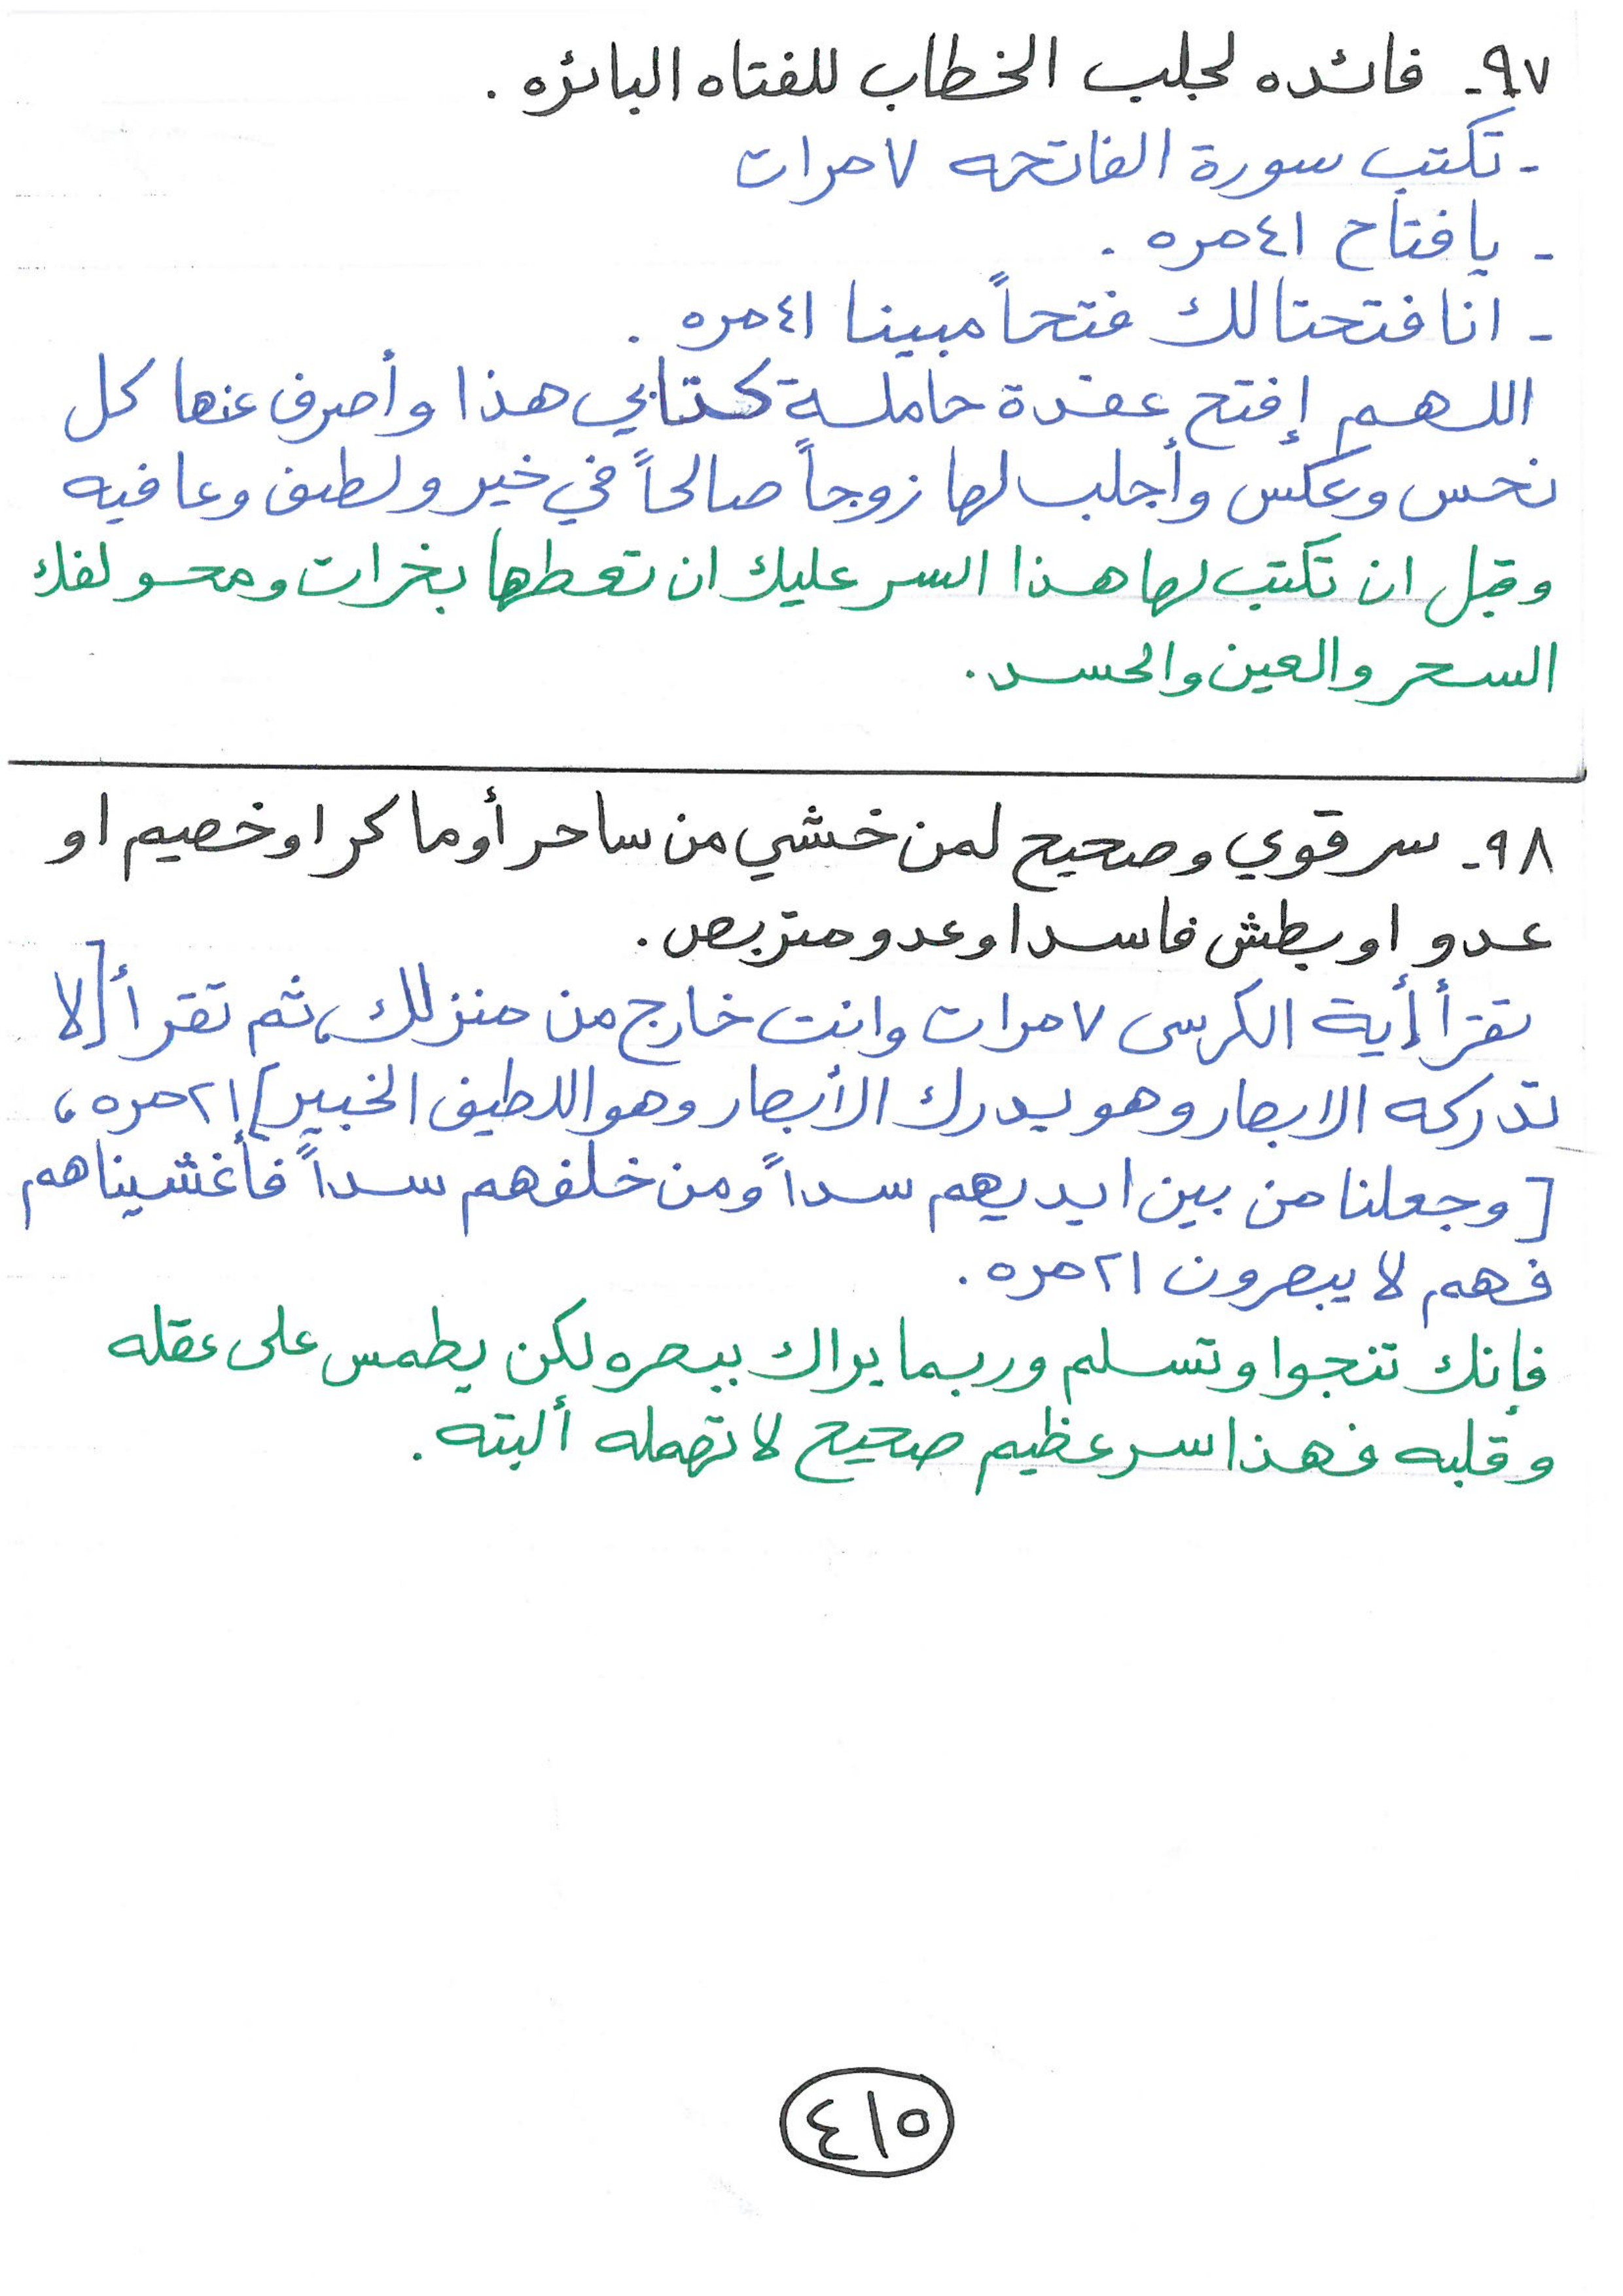 ٩٧- فائده لجلب الخطاب للفتاه البائره .
- تكتب سورة الفاتحه ٧ مرات
- يا فتاح ٤١ مره .
- انا فتحنا لك فتحاً مبينا ٤١ مره .
اللهم إفتح عقدة حاملة كتابي هذا وأصرف عنها كل
نحس وعكس وأجلب لها زوجاً صالحاً في خير ولطف وعافيه
وقبل ان تكتب لها هذا السر عليك ان تعطها بخرات ومحو لفك
السحر والعين والحسد .
٩٨- سر قوي وصحيح لمن خشي من ساحر أو ماكر او خصيم او
عدو او بطش فاسد او عدو متربص .
تقرأ أية الكرسى ٧ مرات وانت خارج من منزلك، ثم تقرأ [لا
تدركه الابصار وهو يدرك الأبصار وهو اللطيف الخبير] ٢١ مره ،
[وجعلنا من بين ايديهم سداً ومن خلفهم سداً فأغشيناهم
فهم لا يبصرون ٢١ مره .
فإنك تنجوا وتسلم وربما يراك ببصره لكن يطمس على عقله
وقلبه فهذا سر عظيم صحيح لا تهمله ألبته .
٤١٥